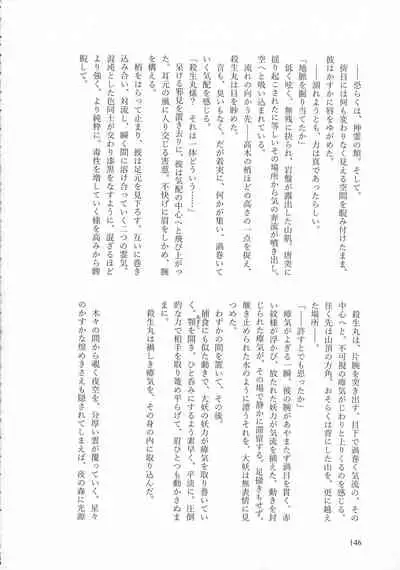 ――恐らくは、神霊の類。そして。
傍目には何も変わりなく見える空間を睨み付けたまま、
彼はかすかに唇をゆがめた。
――溺れようとも、力は真であったらしい。
「地脈を掘り当てたか」
低く吐く。無残に抉られ、岩盤が露出した山肌。唐突に
揺り起こされたに等しいその場所から気の奔流が噴き出し、
空へと吸い込まれている。
流れの向かう先――高木の梢ほどの高さの一点を捉え、
殺生丸は目を眇めた。
音も、臭いもなく、だが着実に、何かが集い、渦巻いて
いく気配を感じる。
「殺生丸様? それは一体どういう……」
呆ける邪見を置き去りに、彼は気配の中心へと飛び上がっ
た。耳元の風に入り交じる害意。不快げに眉をしかめ、腕
を構える。
梢をはらって止まり、彼は足元を見下ろす。互いに巻き
込み合い、対流し、瞬く間に溶け合っていく二つの霊気。
混沌とした色同士が交わり漆黒をなすように、混ざるほど
より強く、より純粋に、毒性を増していく様を高みから睥
睨して。
殺生丸は、片腕を突き出す。目下で渦巻く気流の、その
中心へと。不可視の瘴気がじわりと上りくるのを感じる。
往く先は山頂の方角。おそらくは背にした山を、更に越え
た場所――。
「――許すとでも思ったか」
瘴気がよぎる一瞬、彼の腕があやまたず渦目を貫く。赤
い紋様が浮かび、放たれた妖力が気流を捕えた。動きを封
じられた瘴気が、その場で静かに滞留する。足掻きもせず、
堰き止められた水のように漂うそれを、大妖は無表情に見
つめた。
わずかの間を置いて、その後。
捕食にも似た動きで、大妖の妖力が瘴気を取り巻いてい
く。顎を開き、ひと呑みにするよう素早く、平淡に、圧倒
的な力で相手を取り籠め平らげて、眉ひとつも動かさぬま
まに。
殺生丸は禍しき瘴気を、その身の内に取り込んだ。
木々の間から覗く夜空を、分厚い雲が覆っていく。星々
のかすかな煌めきさえも隠されてしまえば、夜の森に光源
146